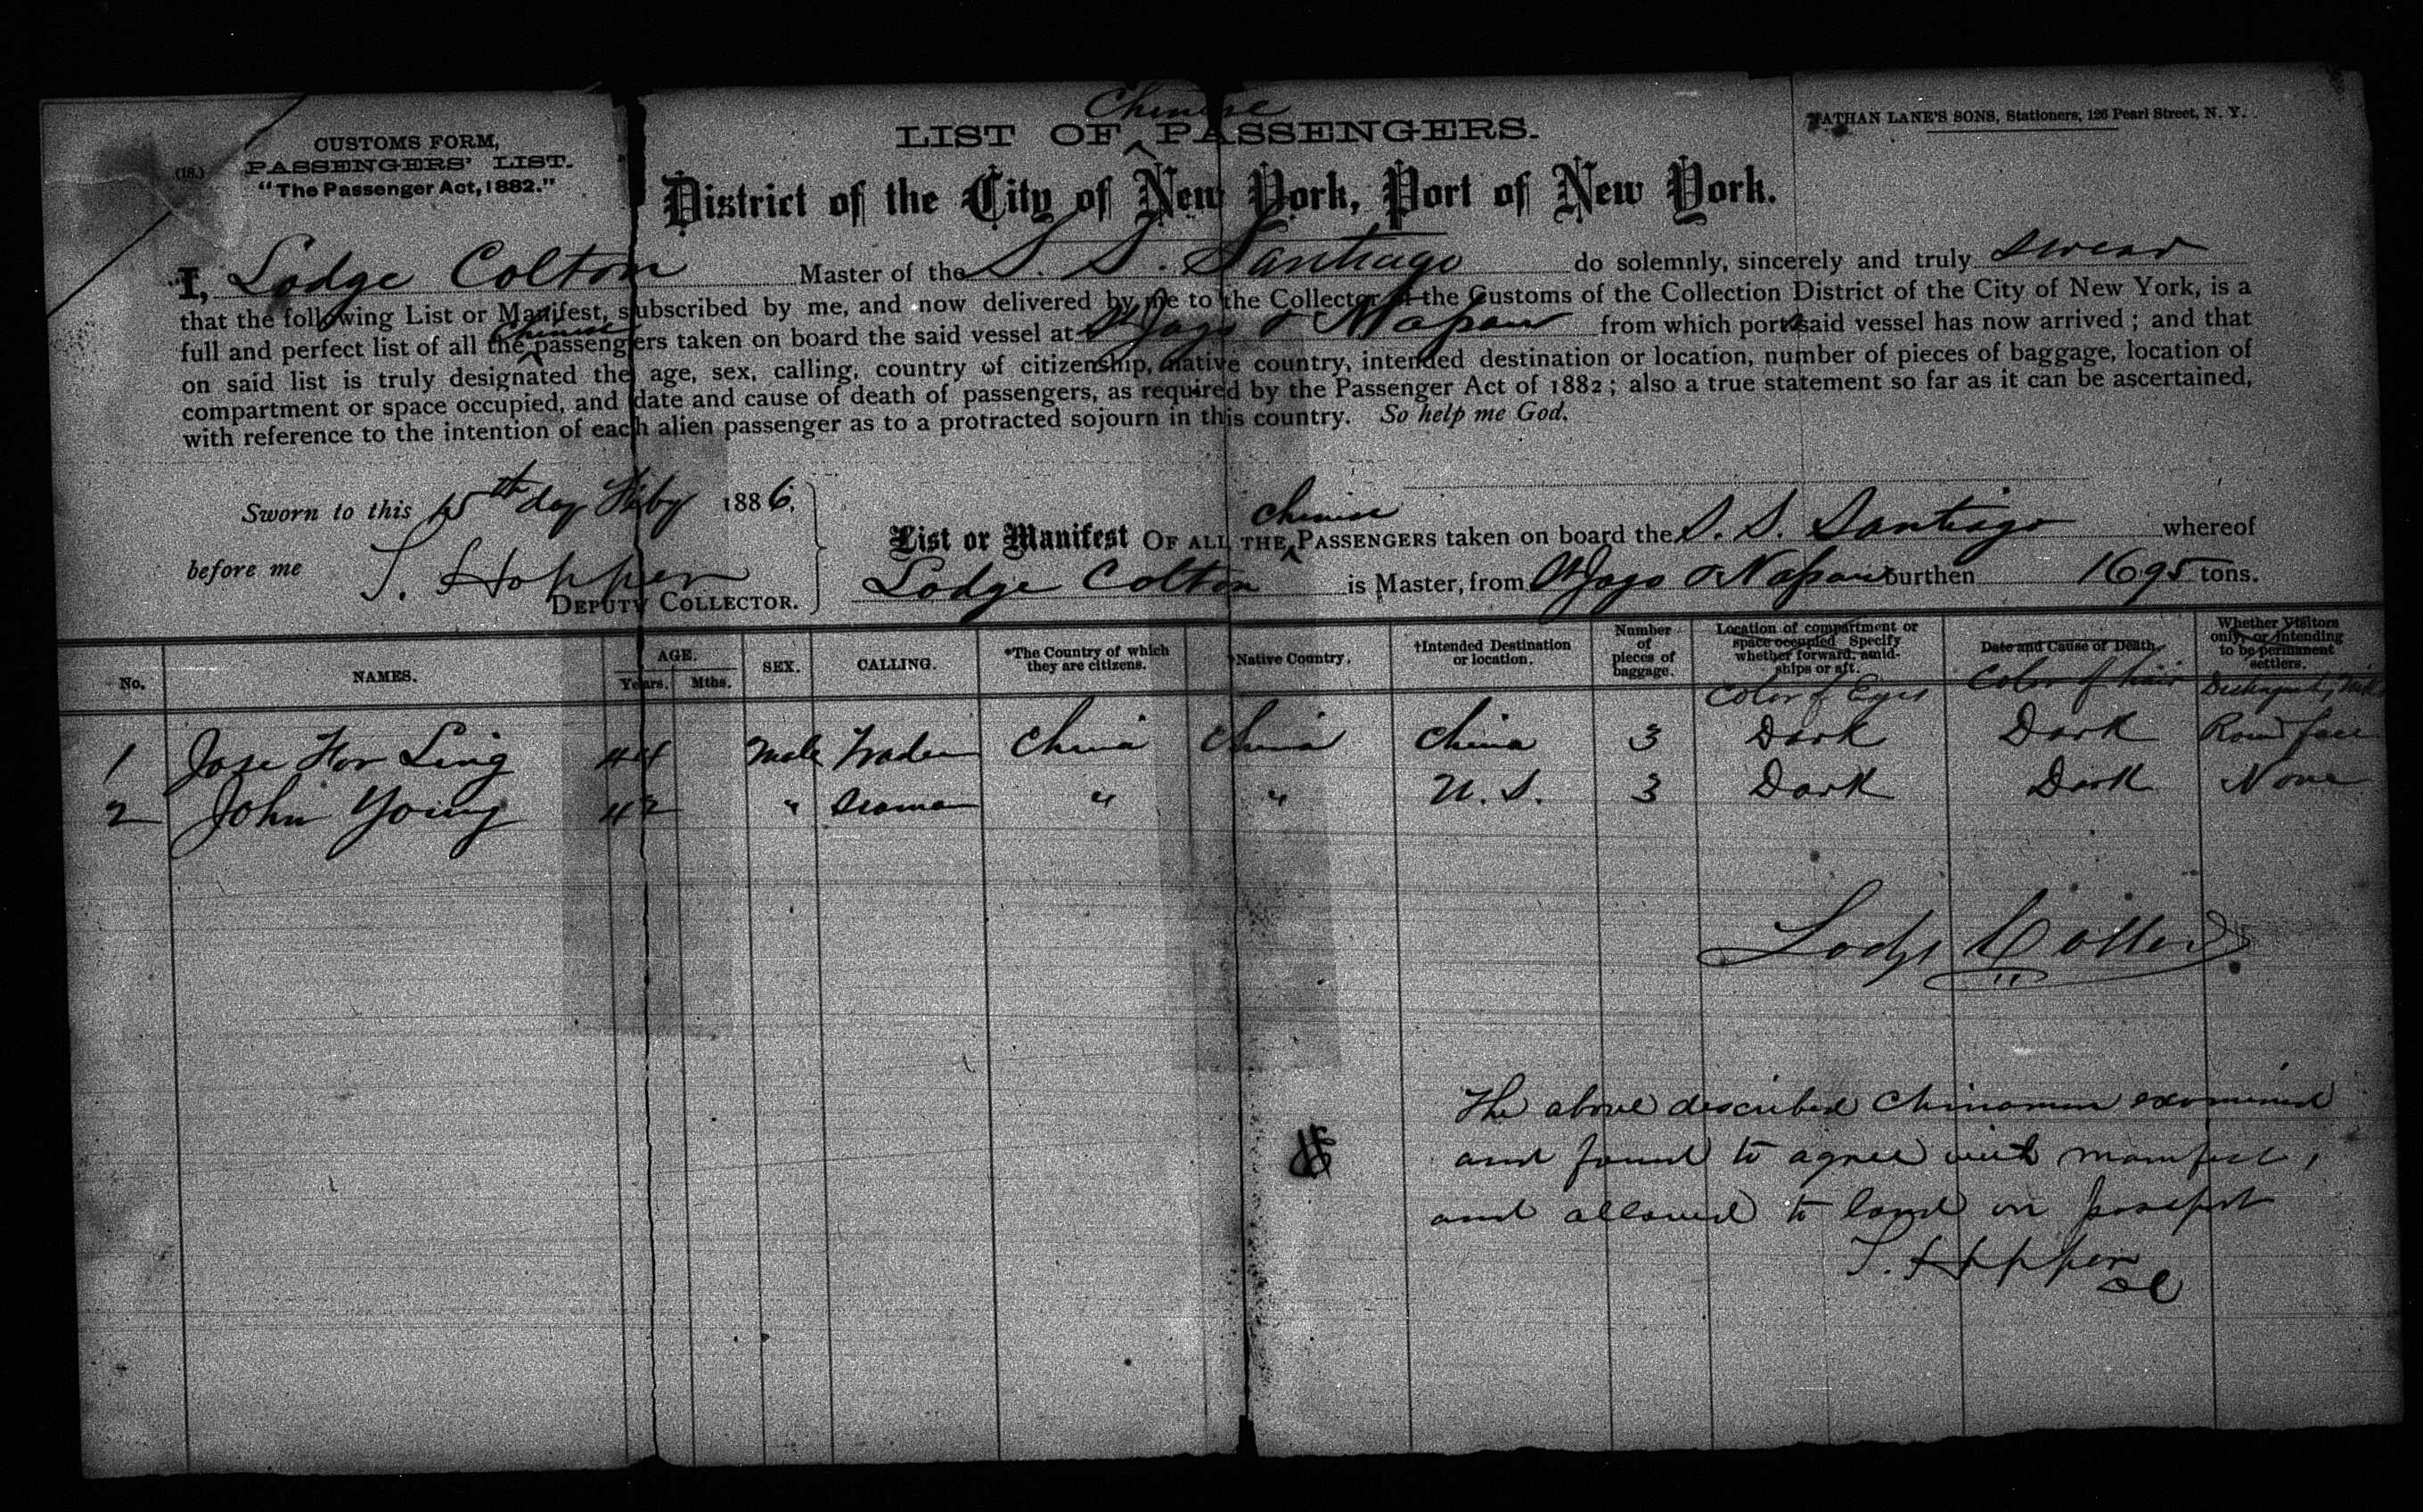 Chinese
CUSTOMS FORM,
LIST OF PASSENGERS.
NATHAN LANE'S SONS, Stationers, 126 Pearl Street, N. Y.
(18.) PASSENGERS' LIST.
"The Passenger Act, 1882."
District of the City of New York, Port of New York.
I, Lodge Colton Master of the S. S. Santiago do solemnly, sincerely and truly swear
that the following List or Manifest, subscribed by me, and now delivered by me to the Collector of the Customs of the Collection District of the City of New York, is a
full and perfect list of all the Chinese passengers taken on board the said vessel at St Jago & Nassau from which ports said vessel has now arrived; and that
on said list is truly designated the age, sex, calling, country of citizenship, native country, intended destination or location, number of pieces of baggage, location of
compartment or space occupied, and date and cause of death of passengers, as required by the Passenger Act of 1882; also a true statement so far as it can be ascertained,
with reference to the intention of each alien passenger as to a protracted sojourn in this country. So help me God.
Sworn to this 15th day Feby 1886,
before me T. Hopper
DEPUTY COLLECTOR.
List or Manifest OF ALL THE Chinese PASSENGERS taken on board the S. S. Santiago whereof
Lodge Colton is Master, from St Jago & Nassau burthen 1695 tons.
No. NAMES. AGE. Years. Mths. SEX. CALLING. *The Country of which they are citizens. †Native Country. †Intended Destination or location. Number of pieces of baggage. Location of compartment or space occupied. Specify whether forward, amidships or aft. Date and Cause of Death. Whether Visitors only, or intending to be permanent settlers.
Color of Eyes Color of hair
1 Jose Hor Ling 44 Male Trader China China China 3 Dark Dark Round face
2 John Young 42 " Seaman " " U. S. 3 Dark Dark None
Lodge Colton
The above described Chinamen examined
and found to agree with manifest,
and allowed to land on passport
T. Hopper